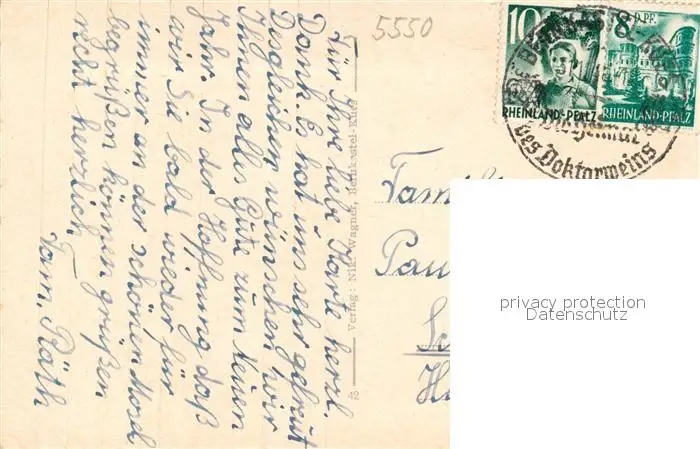 Für Ihre lieb. Karte herzl.
Dank. Es hat uns sehr gefreut
Desgleichen wünschen wir
Ihnen alles Gute zum Neuen
Jahr. In der Hoffnung daß
wir Sie bald wieder für
immer an der schönen Mosel
begrüßen können grüßen
recht herzlich
Fam. Räth
Verlag: Nik. Wagner, Bernkastel-Kues
5550
10
RHEINLAND-PFALZ
8 D.PF.
RHEINLAND-PFALZ
BERNKASTEL-KUES
des Doktorweins
Fami
Pau
privacy protection
Datenschutz